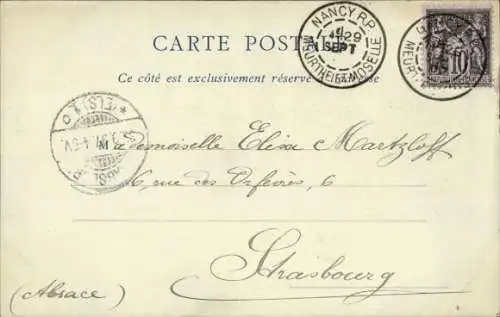 CARTE POSTALE
Ce côté est exclusivement réservé à l'adresse
NANCY R.P.
29
SEPT
MEURTHE ET MOSELLE
MEURT
10
Mademoiselle Elisa Martzloff
6, rue des Orfèvres, 6
Strasbourg
(Alsace)